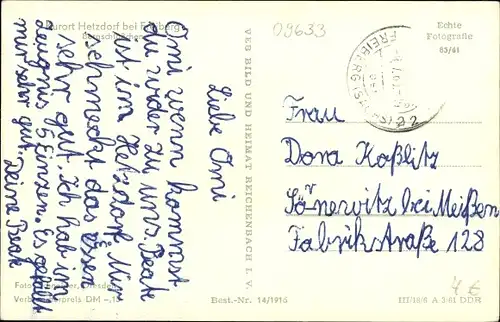 Kurort Hetzdorf bei Freiberg
Bergschlößchen
09633
Echte
Fotografie
63/61
FREIBERG (SACHS) 2
Liebe Omi
Omi wenn kommst
du wider zu uns. Beate
ist im Hetzdorf. Mir
schmeckt das Essen
sehr gut. Ich hab im
Zeugnis 5 Einzen. Es gefält
mir sehr gut. Deine Beate
VEB BILD UND HEIMAT REICHENBACH I. V.
Frau
Dora Koßlitz
Sönewitz bei Meißen
Fabrikstraße 128
Dresden
Verbraucherpreis DM -.15
Best.-Nr. 14/1916
III/18/6 A 3/61 DDR
4 €